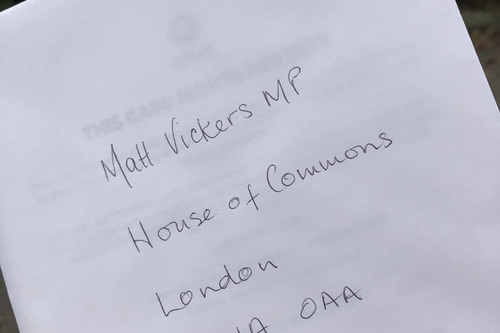 Matt Vickers MP
House of Commons
London
0AA